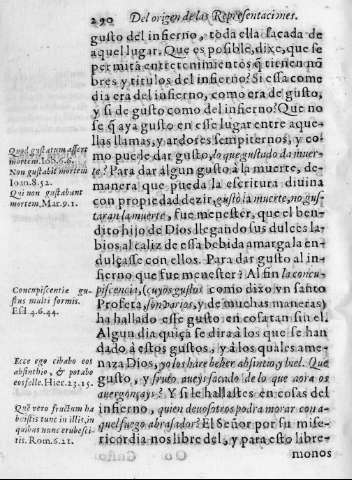 290 Del origen de las Representaciones.
gusto del infierno, toda ella sacada de
aquel lugar. Que es posible, dixe, que se
permitã entretenimientos q̃ tienen nõ
bres y titulos del infierno? Si essa come
dia era del infierno, como era de gusto,
y si de gusto como del infierno? Que no
se q̃ aya gusto en esse lugar entre aque-
llas llamas, y ardores sempiternos, y co-
mo puede dar gusto, lo que gustado da muer-
te? Para dar algun gusto à la muerte, de-
manera que pueda la escritura diuina
con propiedad dezir, gustò la muerte, no gus-
taran la muerte, fue menester, que el ben-
dito hijo de Dios llegando sus dulces la-
bios al caliz de essa bebida amarga la en-
dulçasse con ellos. Para dar gusto al in-
fierno que fue menester? Al fin la concu-
piscencia, (cuyos gustos como dixo vn santo
Profeta, son varios, y de muchas maneras)
ha hallado esse gusto en cosa tan sin el.
Algun dia quiçà se dirà à los que se han
dado à estos gustos, y à los quales ame-
naza Dios, yo los harè beber absintio, y hiel. Que
gusto, y fruto aueys sacado de lo que aora os
auergonçays? Y si le hallastes en cosas del
infierno, quien de uosotros podra morar con a-
quel fuego abrasador? El Señor por su mise-
ricordia nos libre del, y para esto libre-
monos
Quod gustatum affert
mortem. Iob. 6. 6.
Non gustabit mortem
Ioan. 8. 52.
Qui non gustabunt
mortem. Mar. 9. 1.
Concupiscentie gu-
stus multi formis.
Esd. 4. 6. 44.
Ecce ego cibabo eos
absinthio, & potabo
eos felle. Hier. 23. 15.
Quẽ vero fructum ha
buistis tunc in illis, in
quibus nunc erubesci-
tis. Rom. 6. 21.